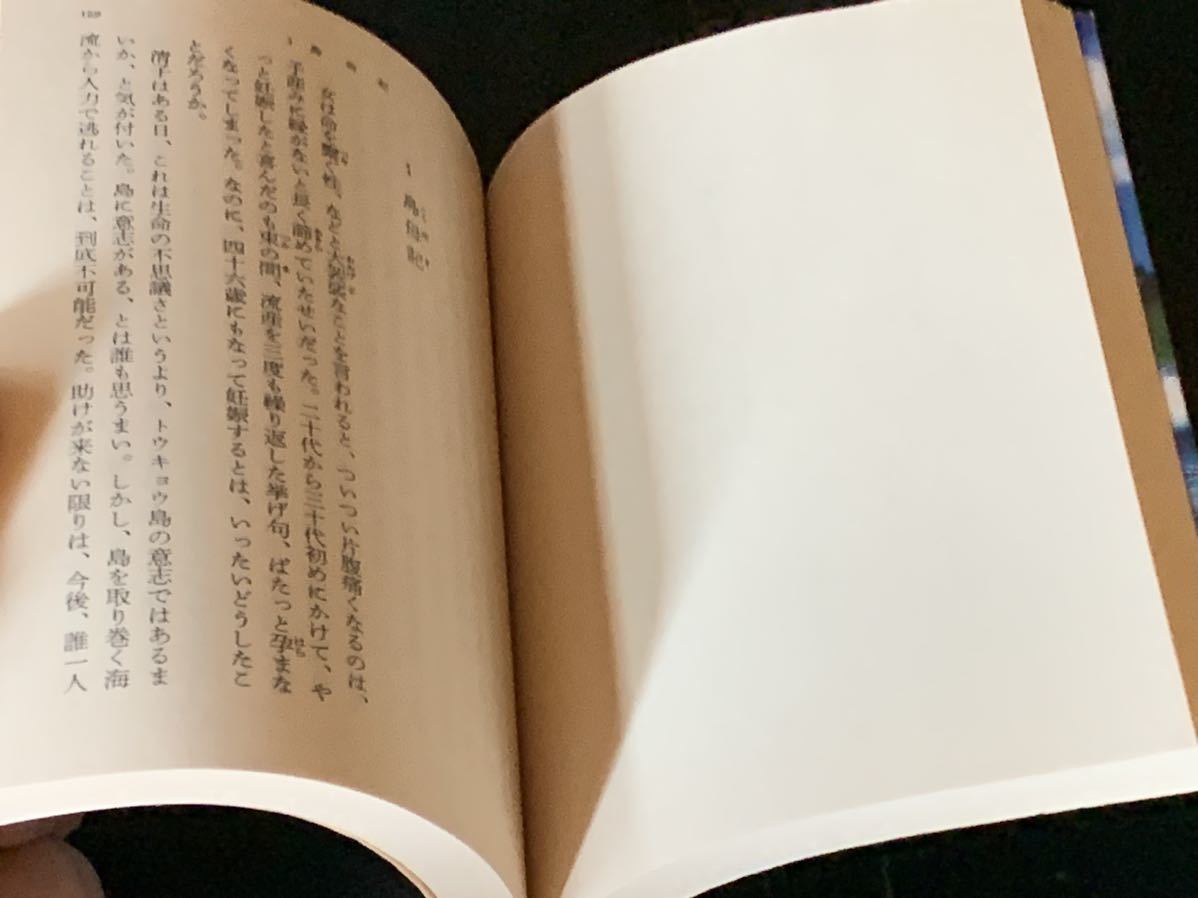 159
1 島母記
女は命を繋ぐ性、などと大袈裟なことを言われると、ついつい片腹痛くなるのは、
子産みに縁がないと長く諦めていたせいだった。二十代から三十代初めにかけて、や
っと妊娠したと喜んだのも束の間、流産を三度も繰り返した挙げ句、ぱたっと孕まな
くなってしまった。なのに、四十六歳にもなって妊娠するとは、いったいどうしたこ
とだろうか。
清子はある日、これは生命の不思議さというより、トウキョウ島の意志ではあるま
いか、と気が付いた。島に意志がある、とは誰も思うまい。しかし、島を取り巻く海
流から人力で逃れることは、到底不可能だった。助けが来ない限りは、今後、誰一人